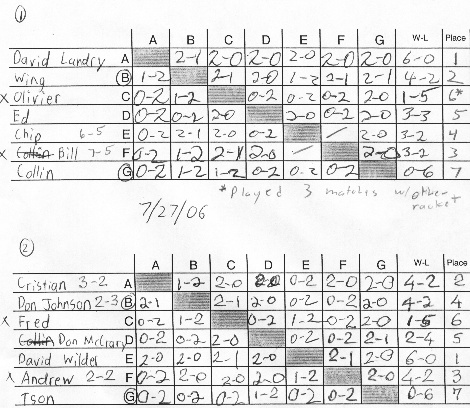 ①
A B C D E F G W-L Place
David Landry A 2-1 2-0 2-0 2-0 2-0 2-0 6-0 1
Wing B 1-2 2-1 2-0 1-2 2-1 2-1 4-2 2
x Olivier C 0-2 1-2 0-2 0-2 0-2 2-0 1-5 6*
Ed D 0-2 0-2 2-0 2-0 0-2 2-0 3-3 5
Chip 6-5 E 0-2 2-1 2-0 0-2 / 2-0 3-2 4
x Bill 7-5 F 0-2 1-2 2-1 2-0 / 2-0 3-2 3
Collin G 0-2 1-2 1-2 0-2 0-2 0-2 0-6 7
*Played 3 matches w/other racket
7/27/06
②
A B C D E F G W-L Place
Cristian 3-2 A 1-2 2-0 2-0 0-2 2-0 2-0 4-2 2
Don Johnson 2-3 B 2-1 2-1 2-0 0-2 0-2 2-0 4-2 4
x Fred C 0-2 1-2 0-2 1-2 0-2 2-0 1-5 6
Don McCrary D 0-2 0-2 2-0 0-2 0-2 2-1 2-4 5
David Wilder E 2-0 2-0 2-1 2-0 2-1 2-0 6-0 1
x Andrew 2-2 F 0-2 2-0 2-0 2-0 1-2 2-0 4-2 3
Tson G 0-2 0-2 0-2 1-2 0-2 0-2 0-6 7